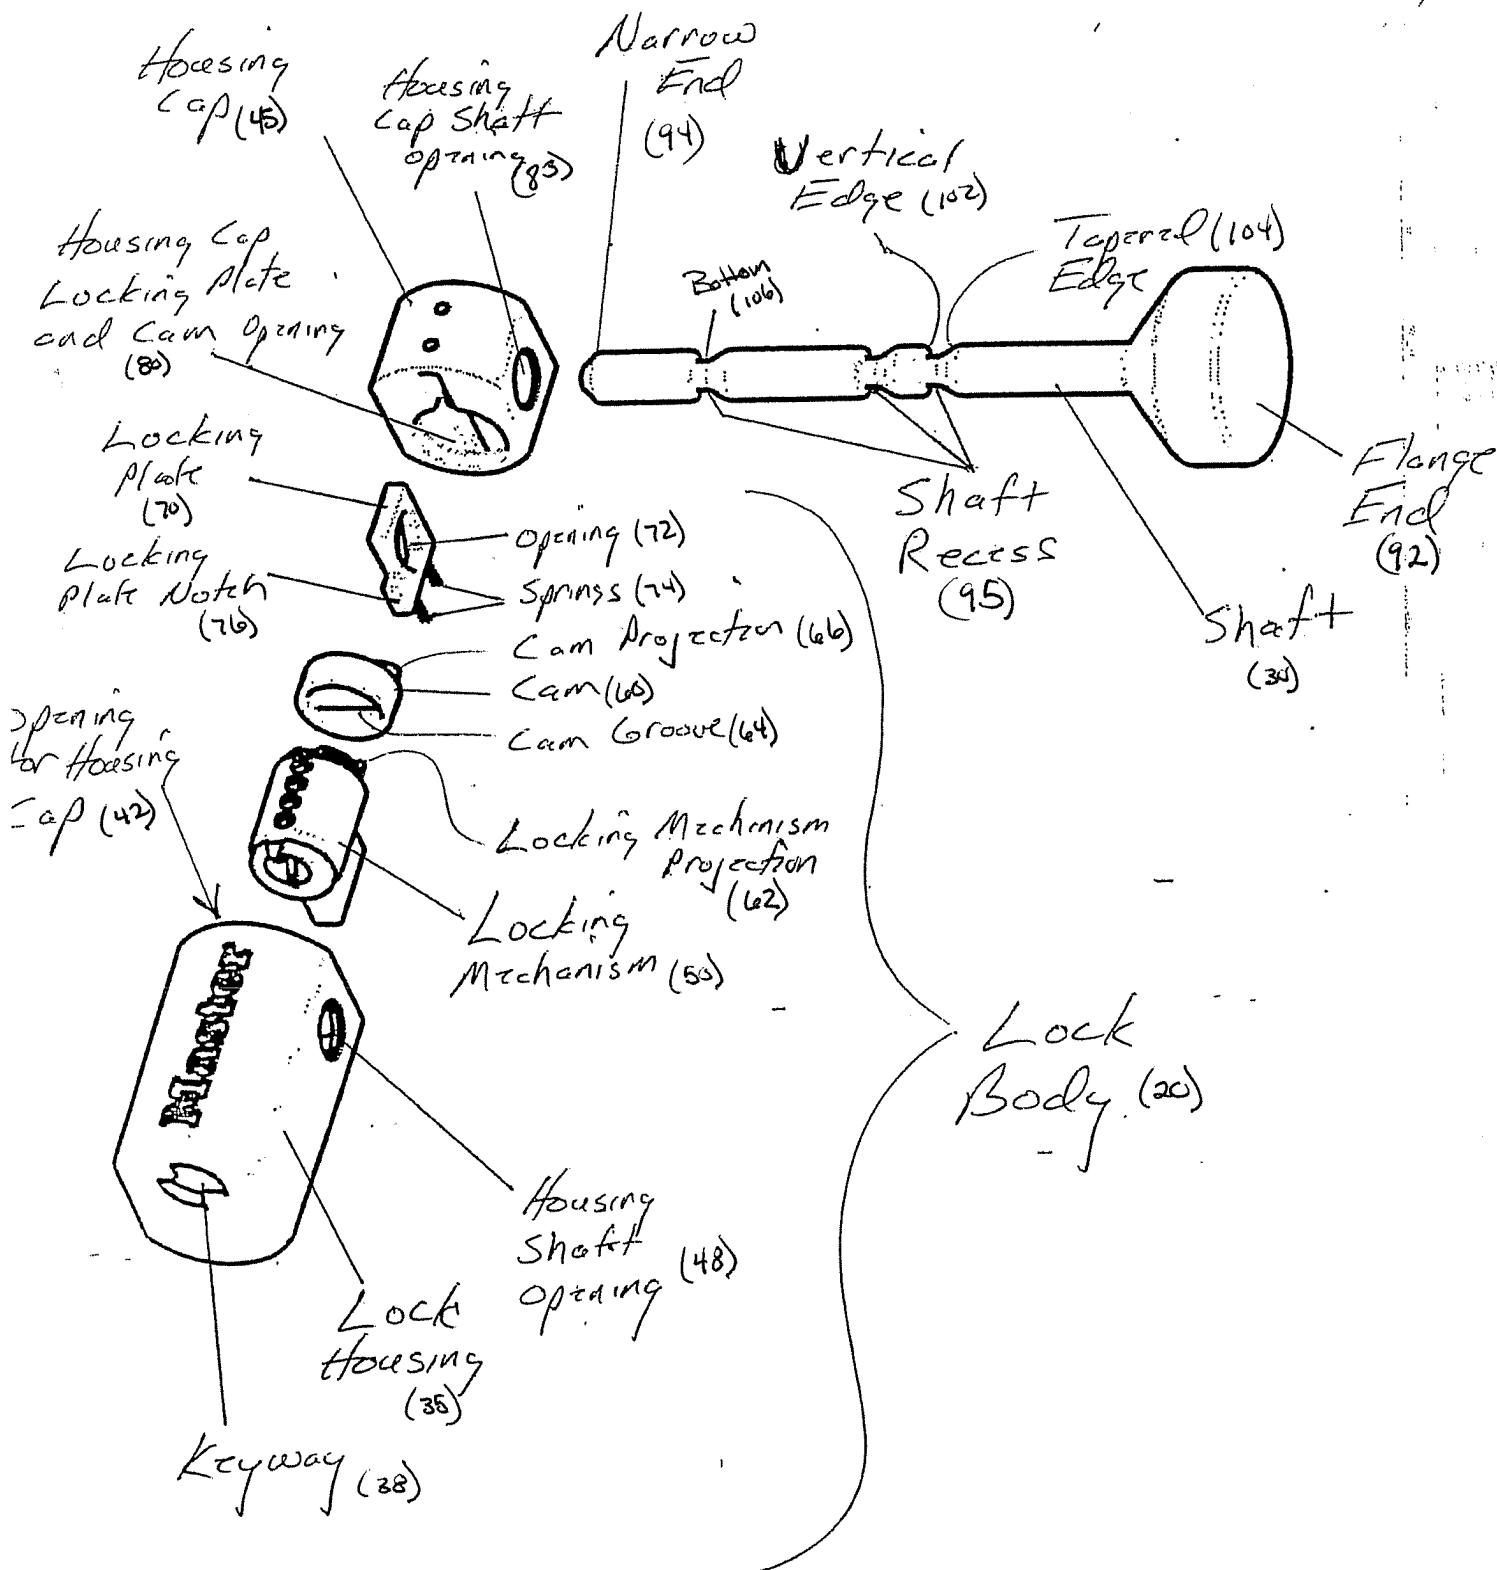 Housing
Cap (45)
Housing
Cap Shaft
Opening
(83)
Narrow
End
(94)
Vertical
Edge (102)
Tapered (104)
Edge
Housing Cap
Locking Plate
and Cam Opening
(80)
Bottom
(106)
Locking
Plate
(70)
Opening (72)
Locking
Plate Notch
(76)
Springs (74)
Cam Projection (66)
Cam (60)
Cam Groove (64)
Shaft
Recess
(95)
Flange
End
(92)
Shaft
(30)
Opening
for Housing
Cap (42)
Locking Mechanism
Projection
(62)
Locking
Mechanism (50)
Master
Lock
Body (20)
Housing
Shaft
Opening (48)
Lock
Housing
(35)
Keyway (38)